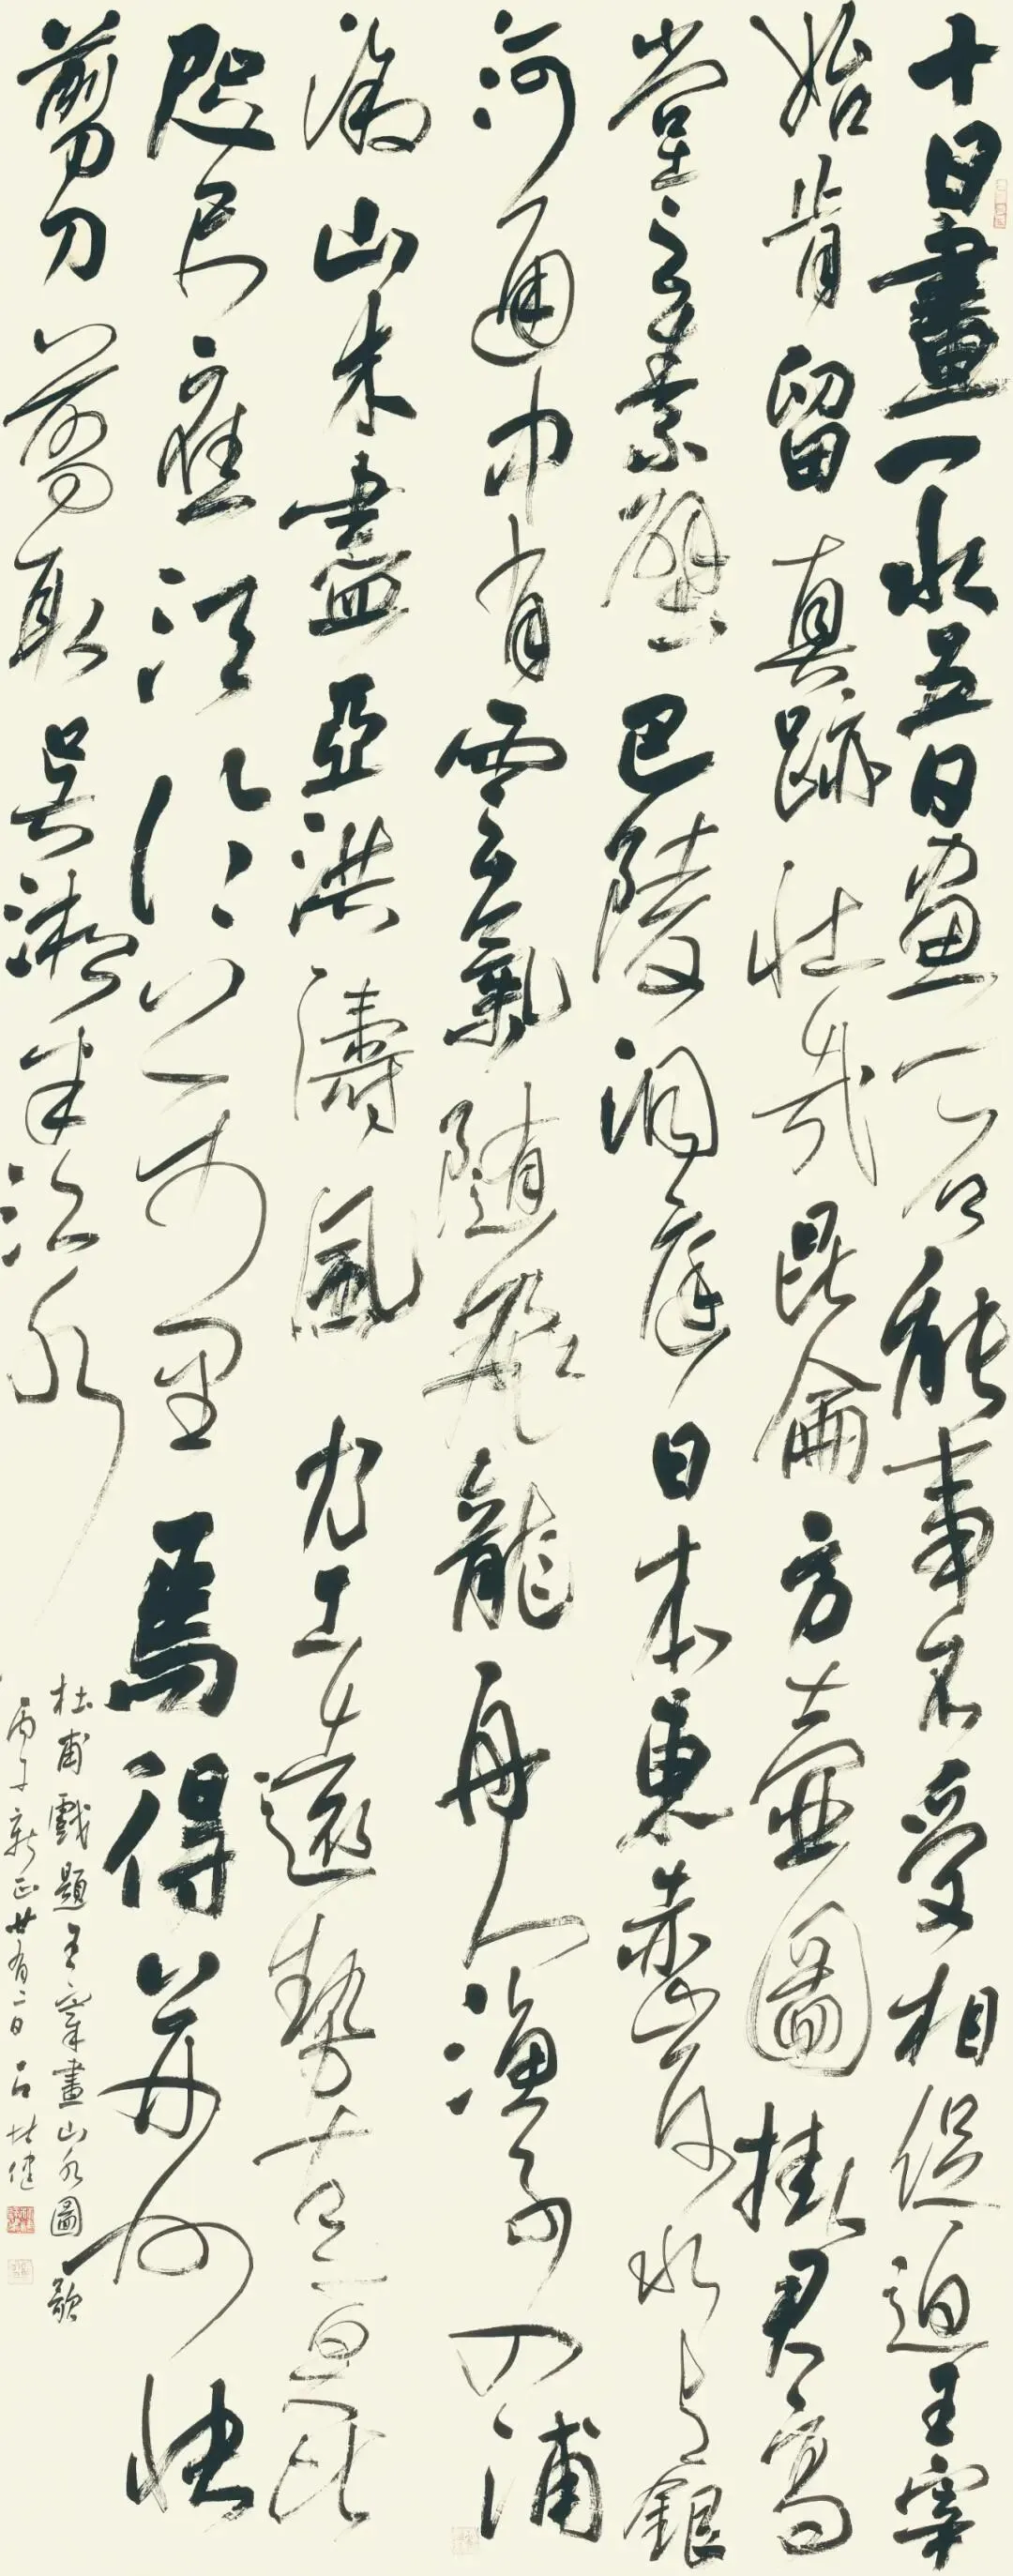 十日畫一水五日畫一石能事不受相促迫王宰
始肯留真跡壯哉昆侖方壺圖掛君高
堂之素壁巴陵洞庭日本東赤岸水與銀
河通中有雲氣隨飛龍舟人漁子入浦
漵山木盡亞洪濤風尤工遠勢古莫比
咫尺應須論萬里焉得并州快
剪刀剪取吳淞半江水
杜甫戲題王宰畫山水圖歌
丙子新正廿有二日